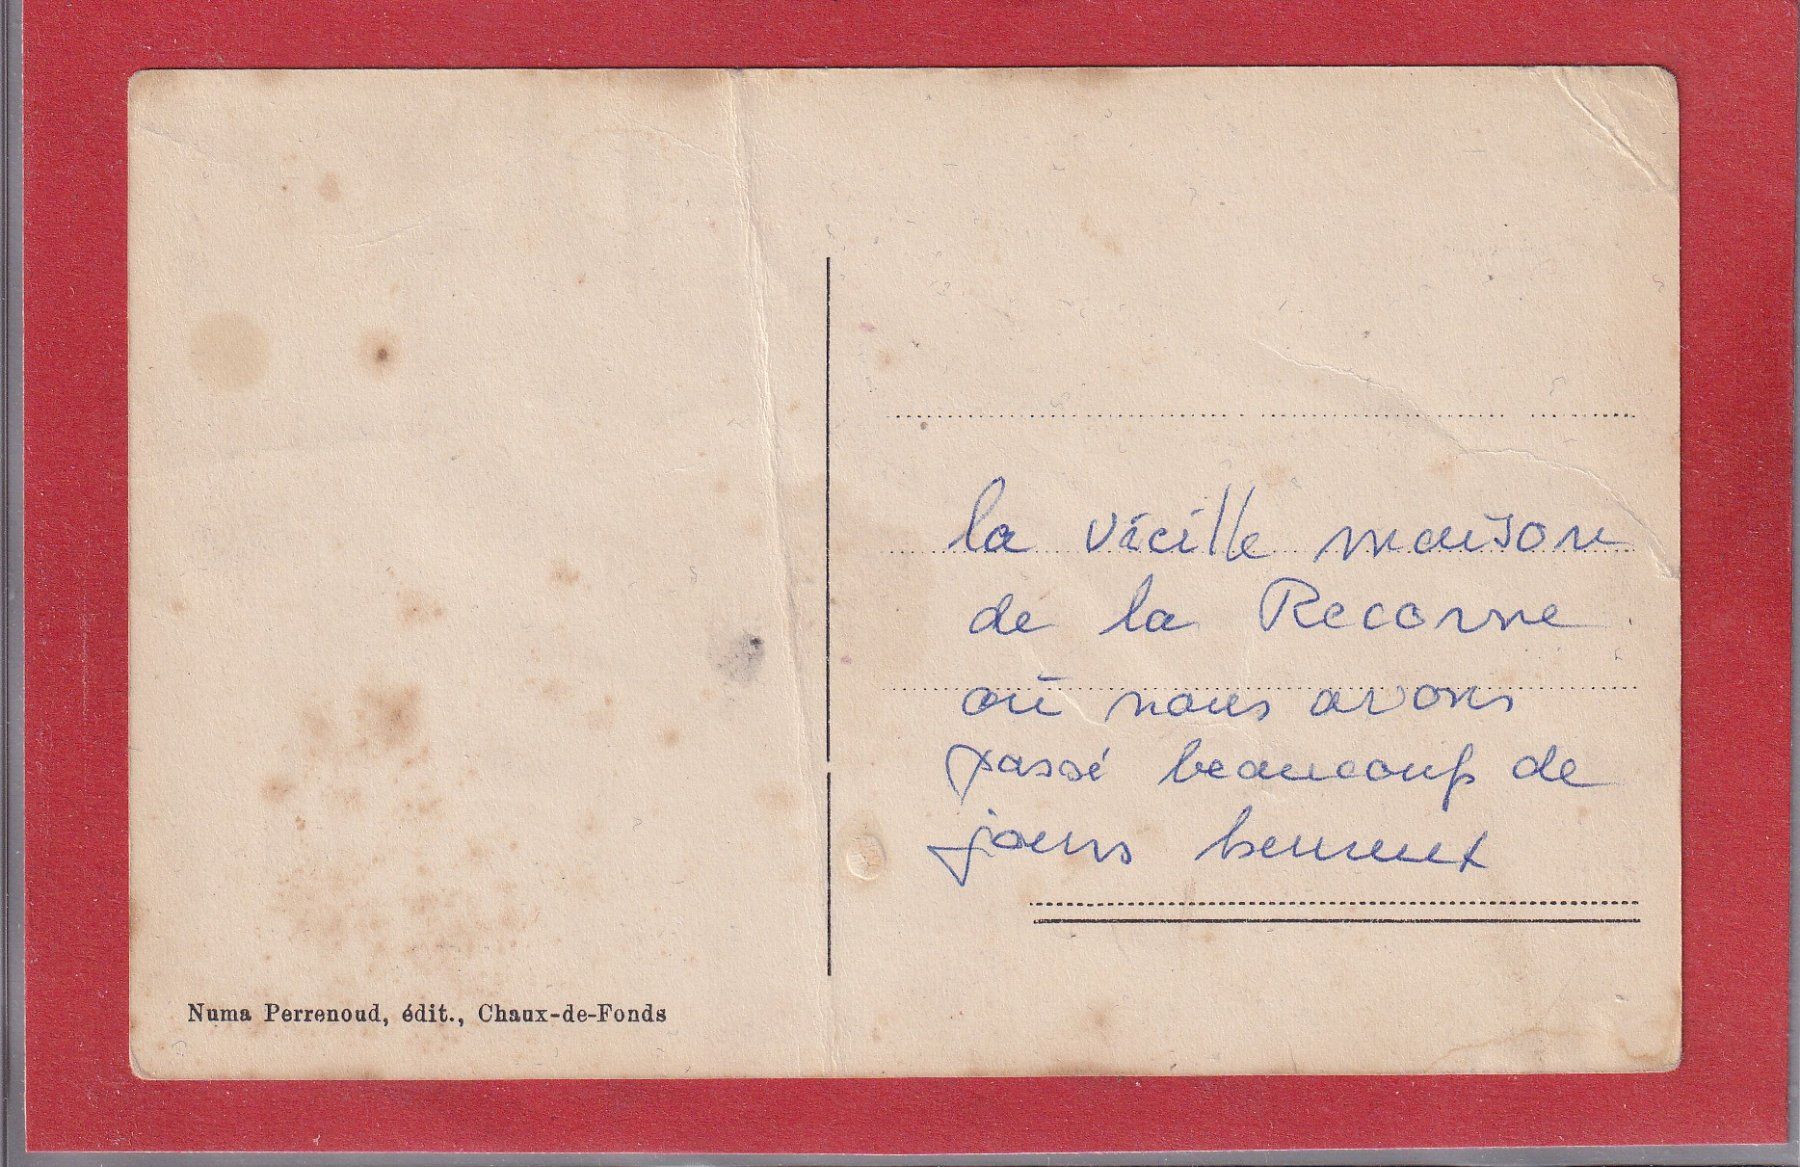 la vieille maison
de la Recorne
où nous avons
passé beaucoup de
jours heureux
Numa Perrenoud, édit., Chaux-de-Fonds